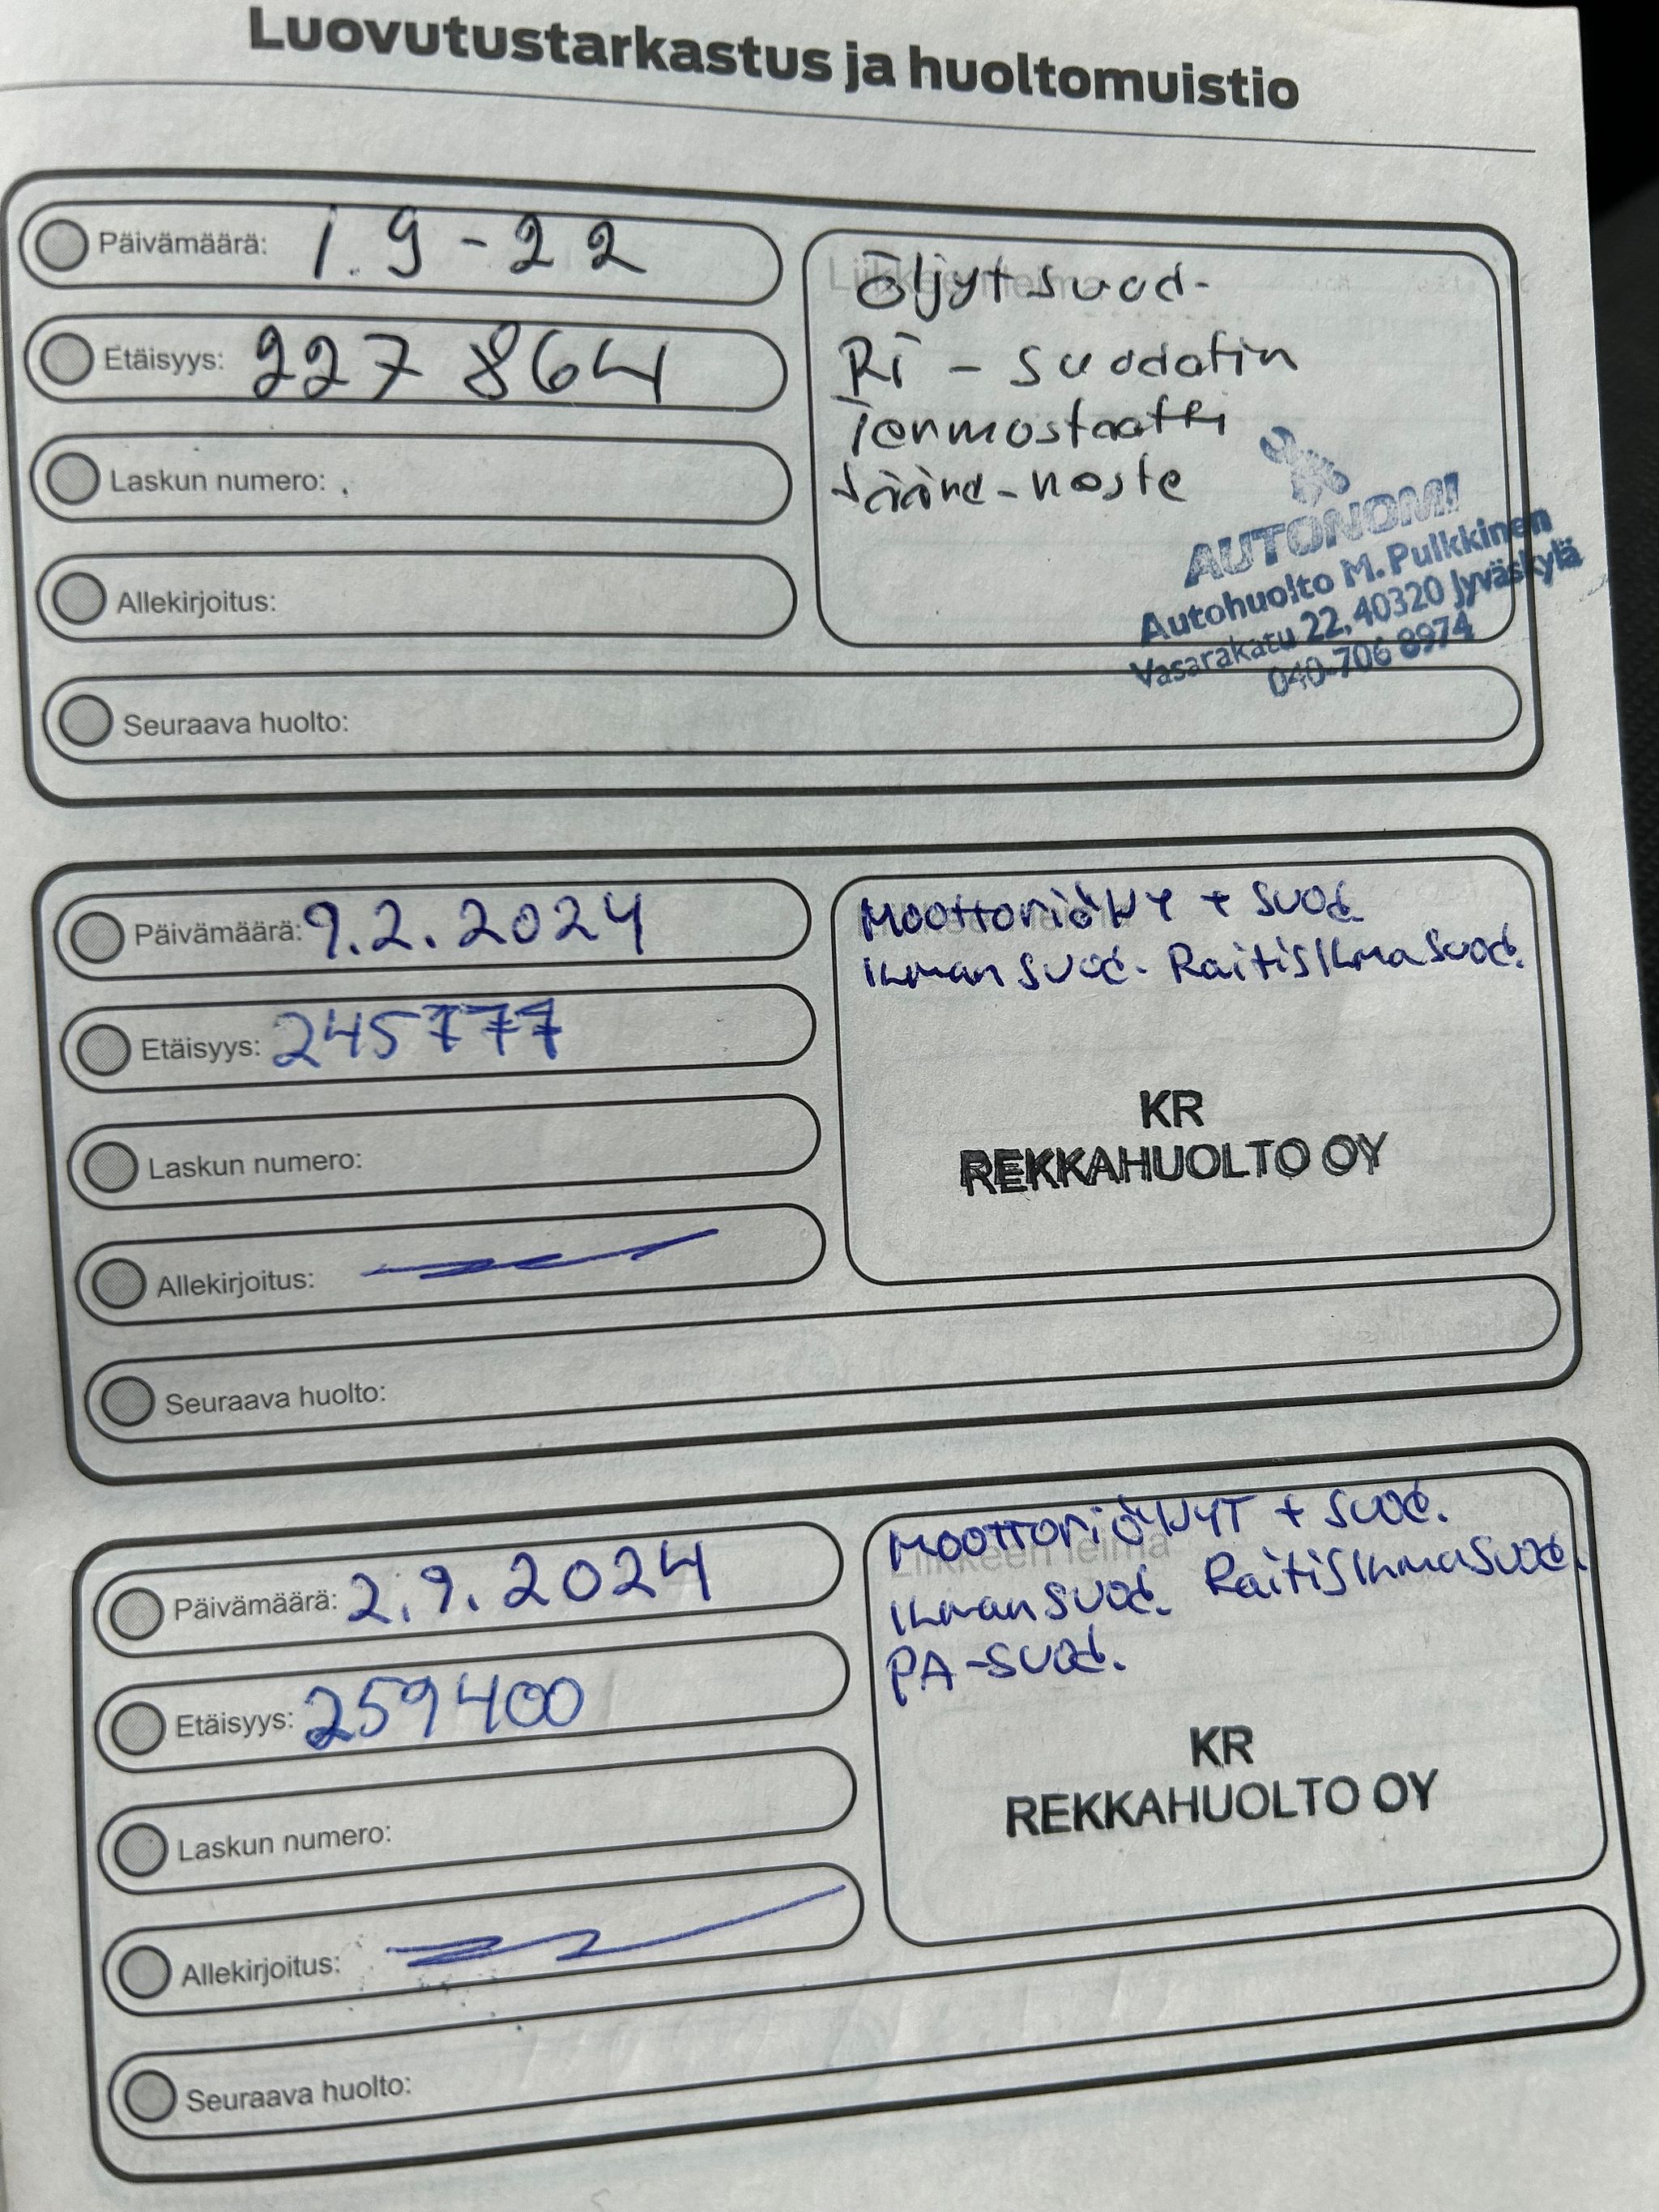 Luovutustarkastus ja huoltomuistio
Päivämäärä: 1.9-22
Etäisyys: 227 864
Laskun numero:
Allekirjoitus:
Seuraava huolto:
Öljyt suod-
Ri - suodatin
Termostaatti
Jäähd-neste
AUTONOMI
Autohuolto M. Pulkkinen
Vasarakatu 22, 40320 Jyväskylä
040-706 8974
Päivämäärä: 9.2.2024
Etäisyys: 245777
Laskun numero:
Allekirjoitus:
Seuraava huolto:
Moottoriöljyt + suod.
Ilmansuod. Raitisilmasuod.
KR
REKKAHUOLTO OY
Päivämäärä: 2.9.2024
Etäisyys: 259400
Laskun numero:
Allekirjoitus:
Seuraava huolto:
Liikkeen leima
Moottoriöljyt + suod.
Ilmansuod. Raitisilmasuod.
PA-suod.
KR
REKKAHUOLTO OY